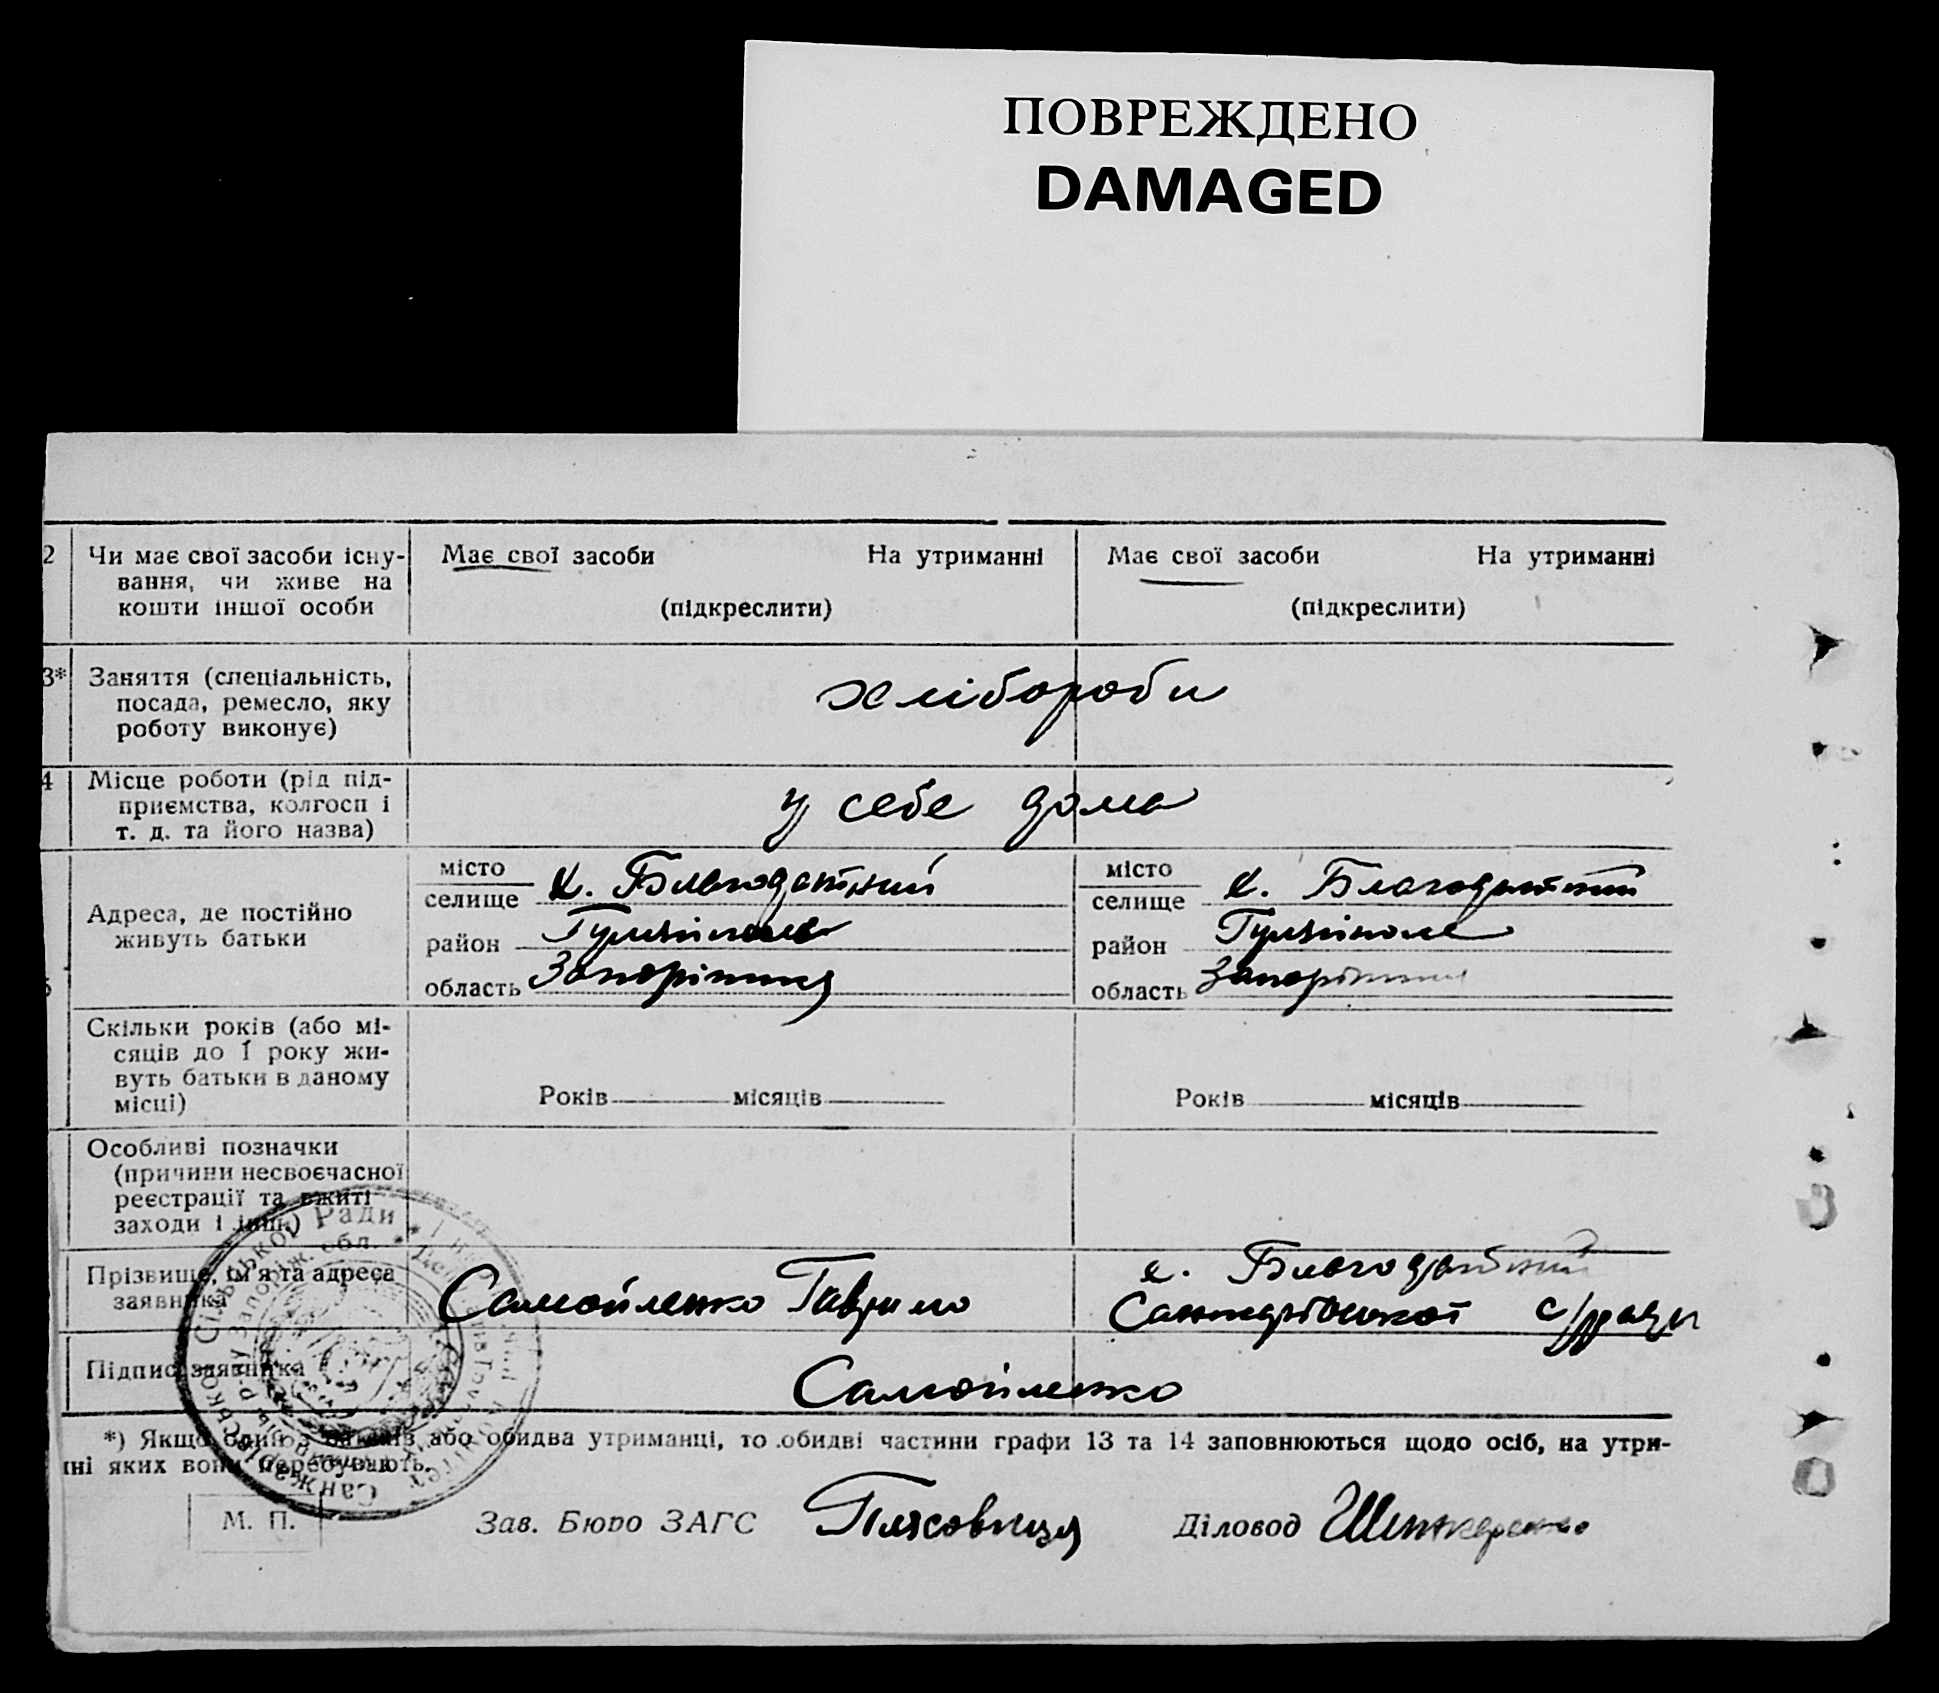 ПОВРЕЖДЕНО
DAMAGED
2 Чи має свої засоби існу- Має свої засоби На утриманні Має свої засоби На утриманні
вання, чи живе на
кошти іншої особи (підкреслити) (підкреслити)
3* Заняття (спеціальність,
посада, ремесло, яку хлібороби
роботу виконує)
4 Місце роботи (рід під-
приємства, колгосп і у себе дома
т. д. та його назва)
місто місто
селище х. Благодатний селище х. Благодатний
Адреса, де постійно
живуть батьки
район Гуляйполе район Гуляйполе
область Запоріжжя область Запоріжжя
Скільки років (або мі-
сяців до 1 року жи-
вуть батьки в даному Років місяців Років місяців
місці)
Особливі позначки
(причини несвоєчасної
реєстрації та вжиті
заходи і інш.)
х. Благодатний
Прізвище, ім'я та адреса
заявника Самойленко Гаврило Санжарівської с/ради
Підпис заявника Самойленко
*) Якщо один з батьків або обидва утриманці, то обидві частини графи 13 та 14 заповнюються щодо осіб, на утри-
нні яких вони перебувають.
М. П. Зав. Бюро ЗАГС Діловод
Сільської Ради
Запоріж. обл.